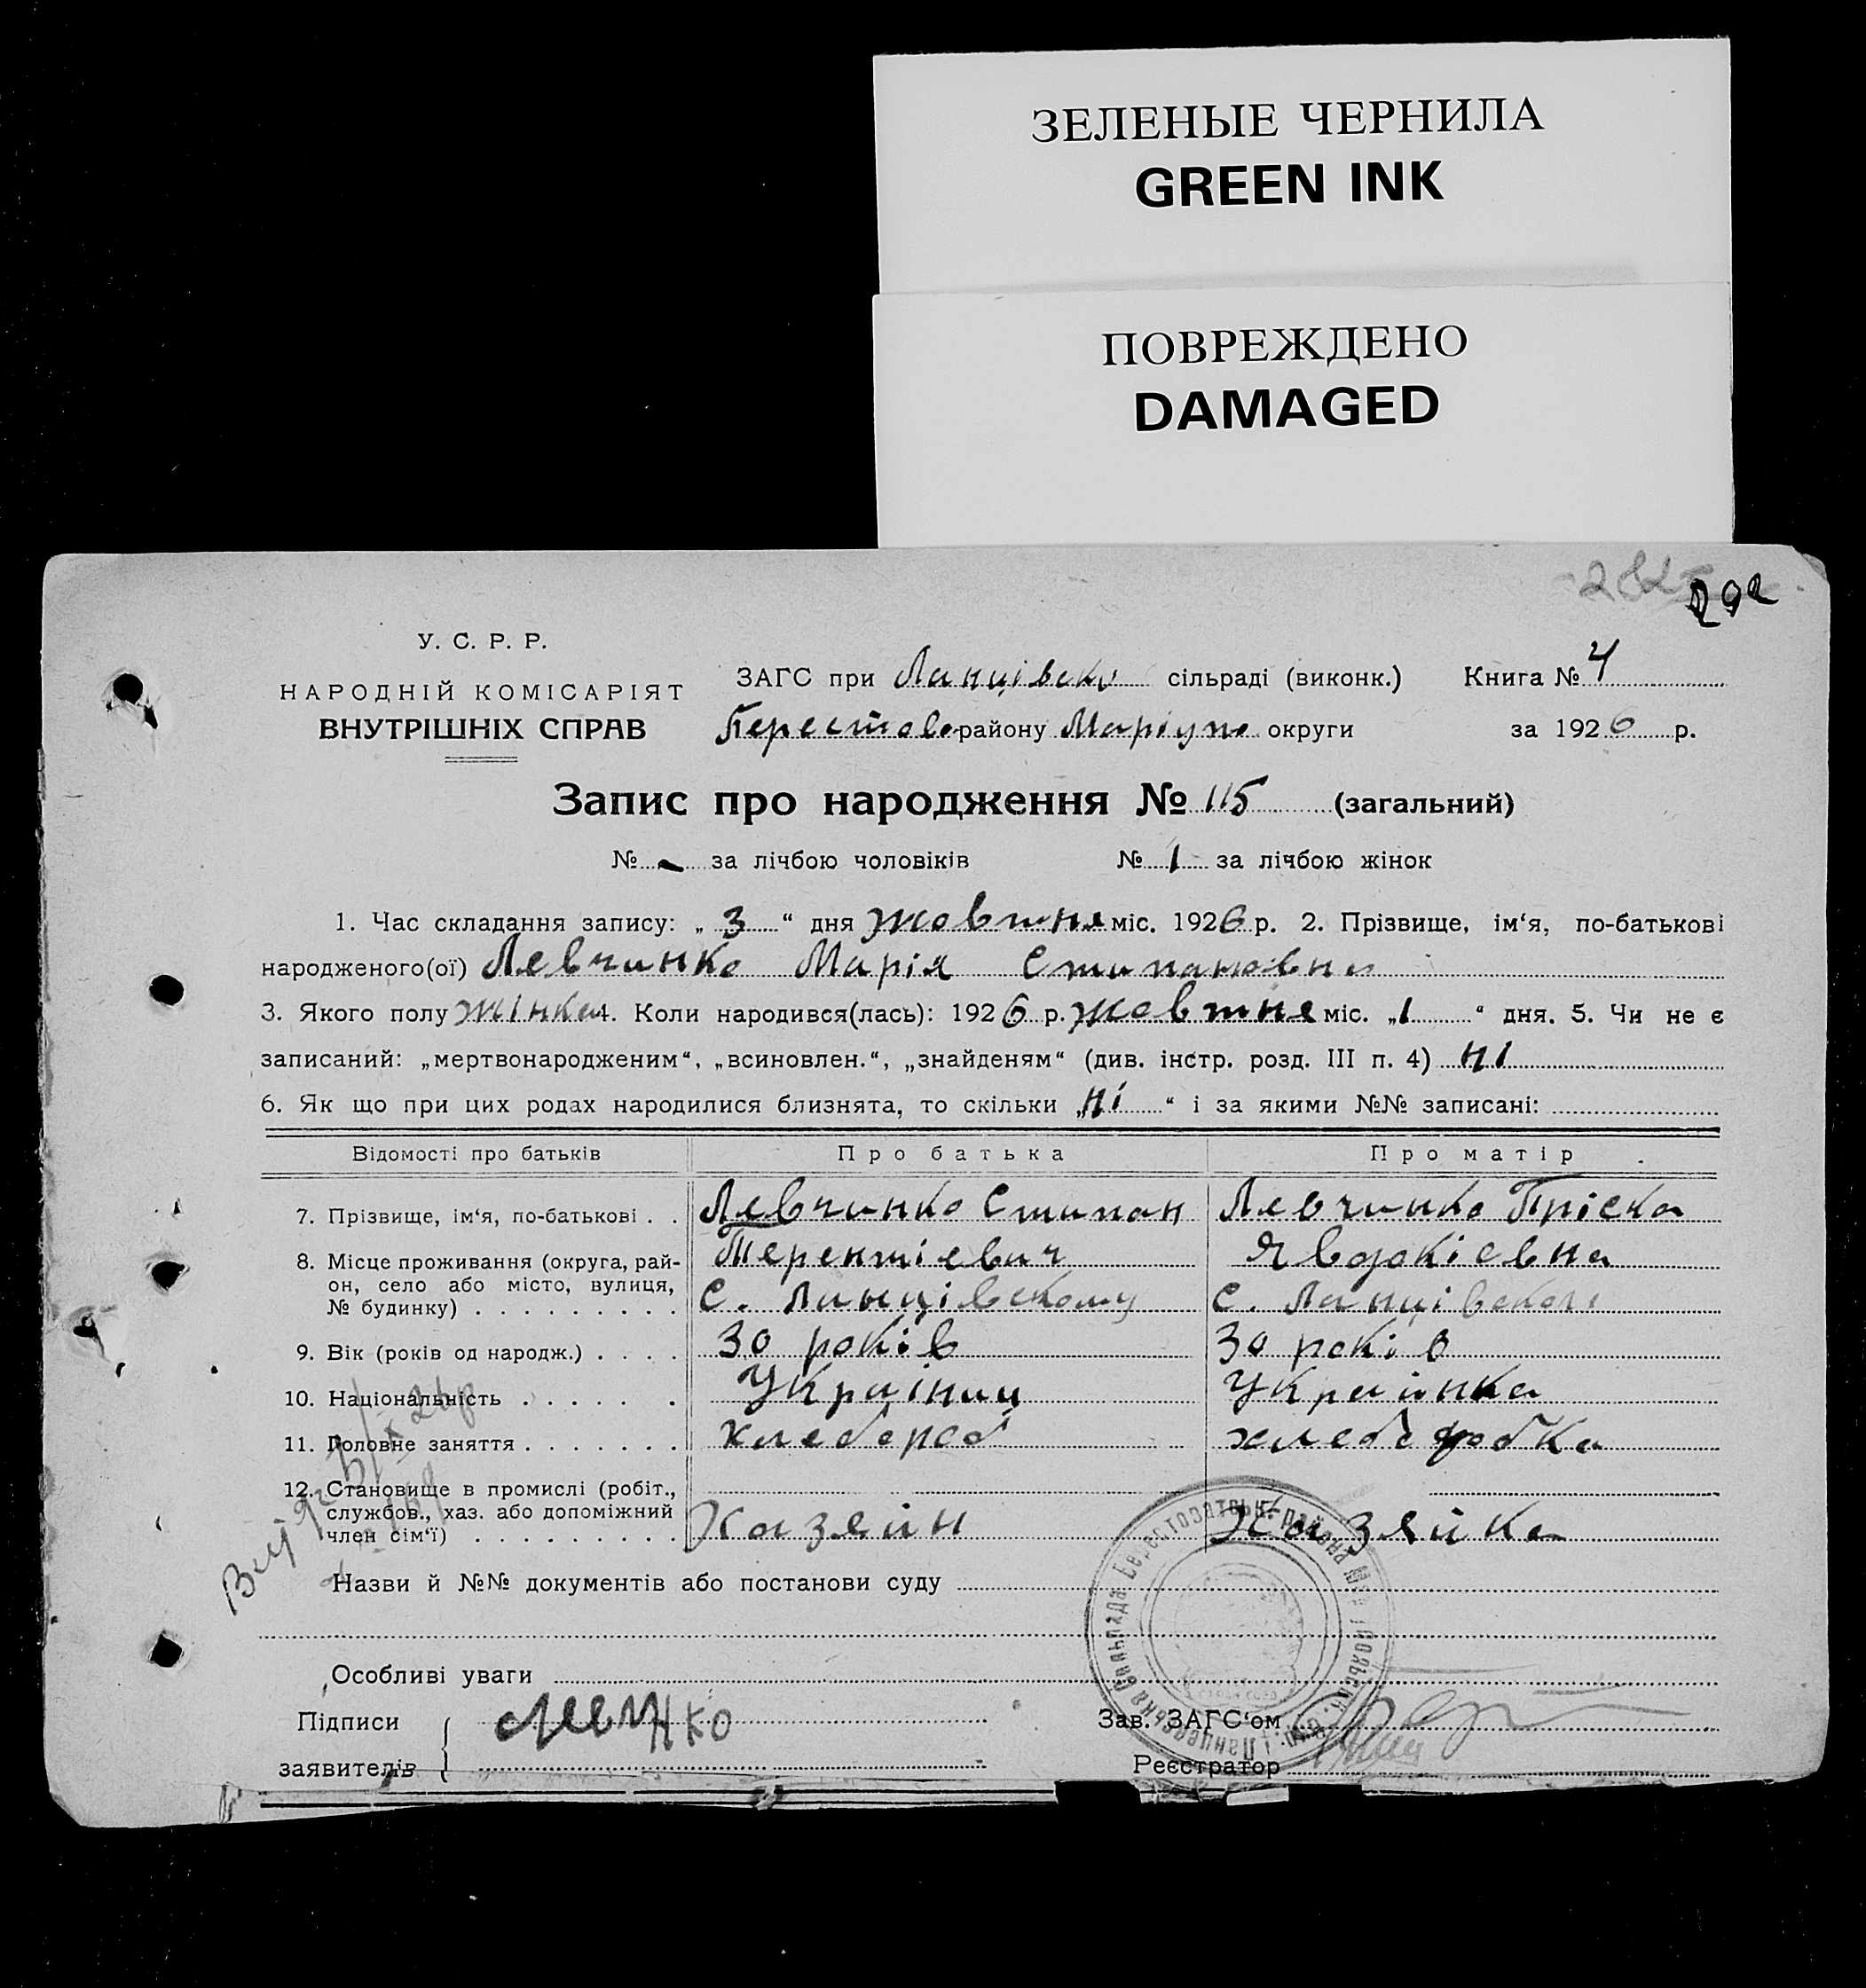 ЗЕЛЕНЫЕ ЧЕРНИЛА
GREEN INK
ПОВРЕЖДЕНО
DAMAGED
282 292
У. С. Р. Р.
НАРОДНІЙ КОМІСАРІЯТ
ВНУТРІШНІХ СПРАВ
ЗАГС при Ланцівско сільраді (виконк.) Книга № 4
Берестово району Маріупо округи за 1926 р.
Запис про народження № 115 (загальний)
№ - за лічбою чоловіків № 1 за лічбою жінок
1. Час складання запису: „ 3 “ дня жовтня міс. 1926 р. 2. Прізвище, ім‘я, по-батькові
народженого(ої) Левчинко Марія Стипановна
3. Якого полу жінка 4. Коли народився(лась): 1926 р. жовтня міс. „1 “ дня. 5. Чи не є
записаний: „мертвонародженим“, „всиновлен.“, „знайденям“ (див. інстр. розд. III п. 4) ні
6. Як що при цих родах народилися близнята, то скільки „ні “ і за якими №№ записані:
Відомості про батьків Про батька Про матір
7. Прізвище, ім‘я, по-батькові . . Левчинко Стипан Левчинко Пріска
Терентієвич Явдокієвна
8. Місце проживання (округа, рай-
он, село або місто, вулиця,
№ будинку) . . . . . . . . . с. Ланцівскому с. Ланцівском
9. Вік (років од народж.) . . . . 30 років 30 років
10. Національність . . . . . . Україниц Українка
11. Головне заняття . . . . . . . хлебороб хлеборобка
12. Становище в промислі (робіт.,
службов., хаз. або допоміжний
член сім‘ї) . . . . . . . . . Хазяин Хазяйка
Назви й №№ документів або постанови суду
Особливі уваги
Підписи
заявителів
Зав. ЗАГС‘ом
Реєстратор